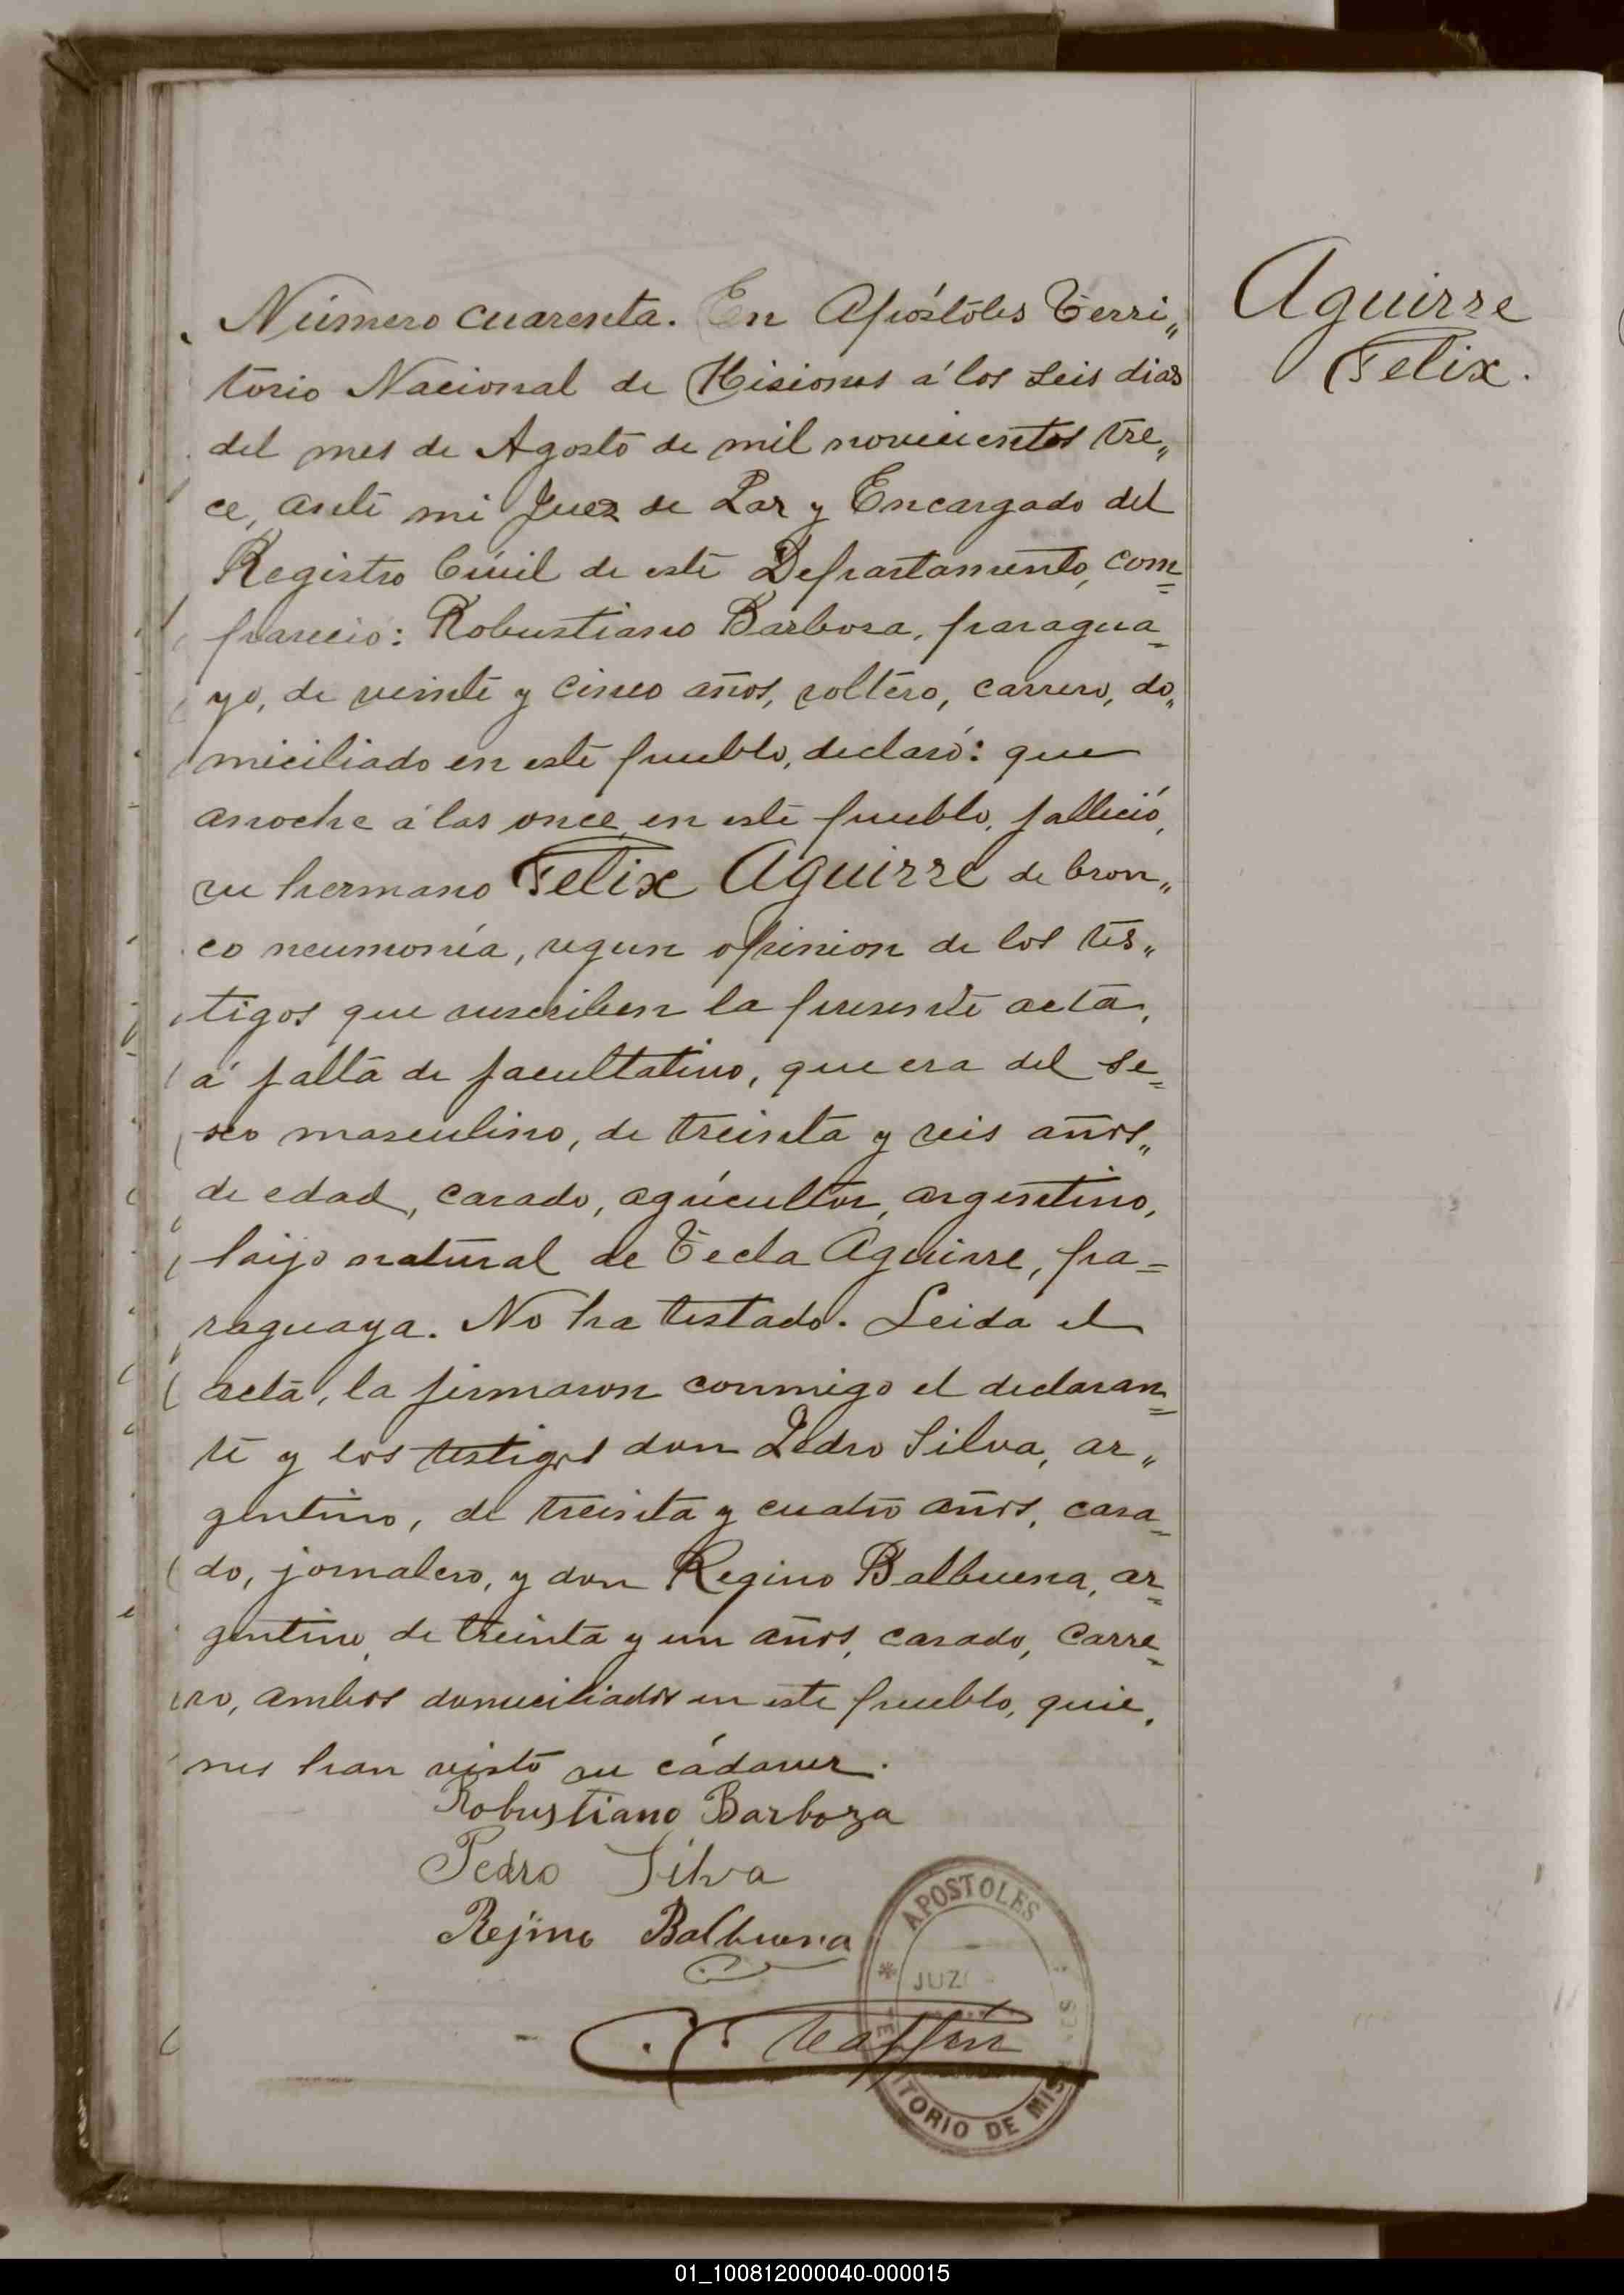 Número cuarenta. En Apóstoles Terri„
torio Nacional de Misiones á los seis dias
del mes de Agosto de mil novecientos tre„
ce, ante mi Juez de Paz y Encargado del
Registro Civil de este Departamento, com=
pareció: Robustiano Barbosa, paragua=
yo, de veinte y cinco años, soltero, carrero, do„
miciliado en este pueblo, declaró: que
anoche á las once, en este pueblo, falleció,
su hermano Felix Aguirre de bron„
co neumonía, segun opinion de los tes„
tigos que suscriben la presente acta,
á falta de facultativo, que era del se=
xo masculino, de treinta y seis años„
de edad, casado, agricultor, argentino,
hijo natural de Tecla Aguirre, pa=
raguaya. No ha testado. Leida el
acta, la firmaron conmigo el declaran=
te y los testigos don Pedro Silva, ar„
gentino, de treinta y cuatro años, casa=
do, jornalero, y don Regino Balbuena, ar=
gentino, de treinta y un años, casado, carre=
ro, ambos domiciliados en este pueblo, quie„
nes han visto su cádaver.
Robustiano Barboza
Pedro Silva
Rejino Balbuena
Aguirre
Felix.
APOSTOLES
JUZ
TERRITORIO DE MIS
01_100812000040-000015